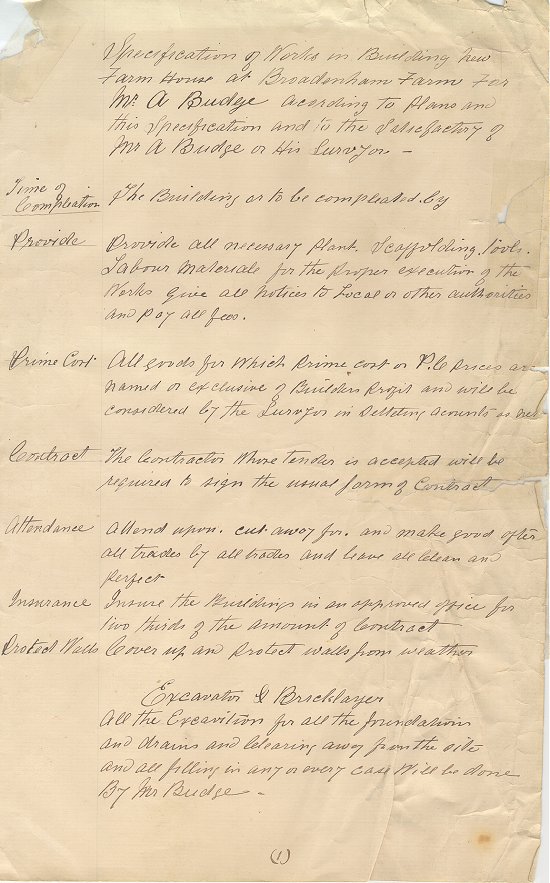 Specification of Works in Building New
Farm House at Broadenham Farm For
Mr A Budge acording to Plans and
this Specification and to the Satisfactory of
Mr A Budge or His Survyor. —
Time of
Compleation
The Building ar to be compleated by
Provide
Provide all necessary plant. Scaffolding. Tools.
Labour Materials for the proper execution of the
Works Give all notices to Local or other authorities
and Pay all fees.
Prime Cost
All goods for Which Prime cost or P.C prices are
named or exclusive of Builders Profit and will be
considered by the Survyor in Settleting acounts as
Contract
The Contractor Whose Tender is accepted will be
required to sign the usual form of Contract
Attendance
Attend upon. cut away for. and make good after
all trades by all trades and leave all clean and
perfect
Insurance
Insure the Buildings in an approved office for
two thirds of the amount of Contract
Protect Walls
Cover up and protect walls from weather
Excavator & Bricklayer
All the Excavition for all the foundations
and drains and Clearing away from the site
and all filling in any or every case Will be done
By Mr Budge —
(1)